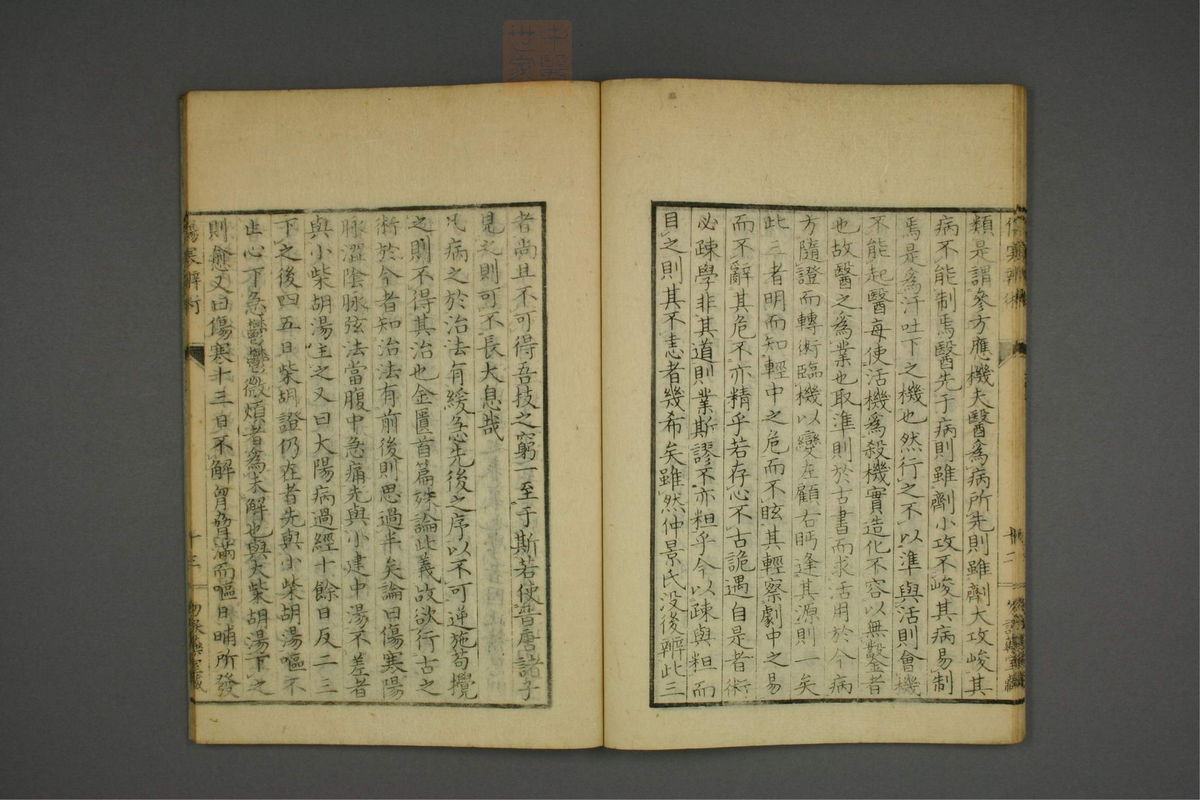 類是謂參方應機夫醫為病所先則雖劑大攻峻其
病不能制焉醫先于病則雖劑小攻不峻其病易制
焉是為汗吐下之機也然行之不以準與活則會機
不能起醫每使活機為殺機實造化不容以無鑿者
也故醫之為業也取準則於古書而求活用於今病
方隨證而轉術臨機以變左顧右眄逢其源則一矣
此三者明而知輕中之危而不眩其輕察劇中之易
而不辭其危不亦精乎若存心不古詭遇自是者術
必疎學非其道則業斯謬不亦粗乎今以疎與粗而
目之則其不恚者幾希矣雖然仲景氏没後辨此三
者尚且不可得吾技之窮一至于斯若使晉唐諸子
見之則可不長大息哉
凡病之於治法有緩急先後之序以不可逆施苟攪
之則不得其治也金匱首篇致論此義故欲行古之
術於今者知治法有前後則思過半矣論曰傷寒陽
脉澀陰脉弦法當腹中急痛先與小建中湯不差者
與小柴胡湯主之又曰大陽病過經十餘日反二三
下之後四五日柴胡證仍在者先與小柴胡湯嘔不
止心下急鬱鬱微煩者為未解也與大柴胡湯下之
則愈又曰傷寒十三日不解胷脅滿而嘔日晡所發
傷寒辨術
十三